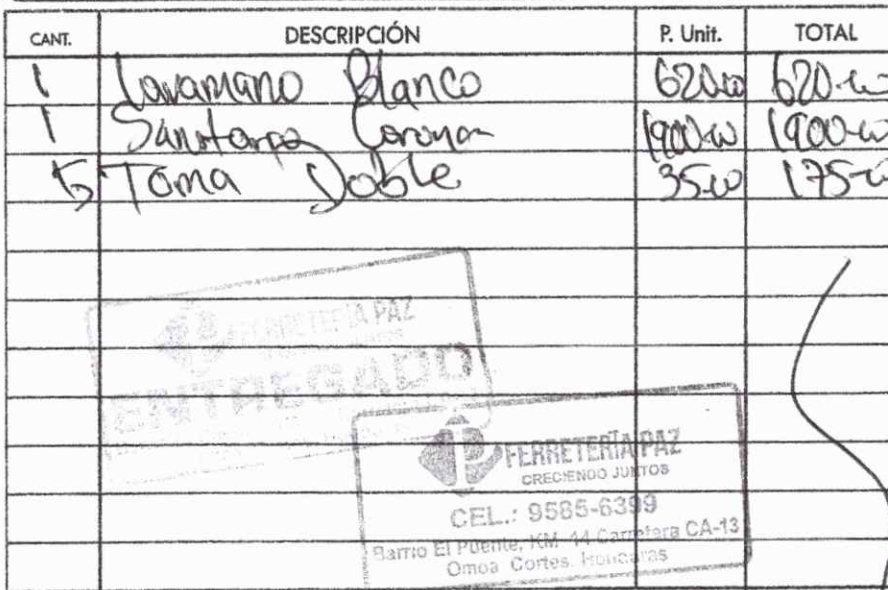 CANT. DESCRIPCIÓN P. Unit. TOTAL
1 Lavamano Blanco 620.00 620.00
1 1900.00 1900.00
5 Toma Doble 35.00 175.00
FERRETERÍA PAZ
ENTREGADO
FERRETERÍA PAZ
CRECIENDO JUNTOS
CEL.: 9585-6399
Barrio El Puente, KM 14 Carretera CA-13
Omoa Cortes, Honduras